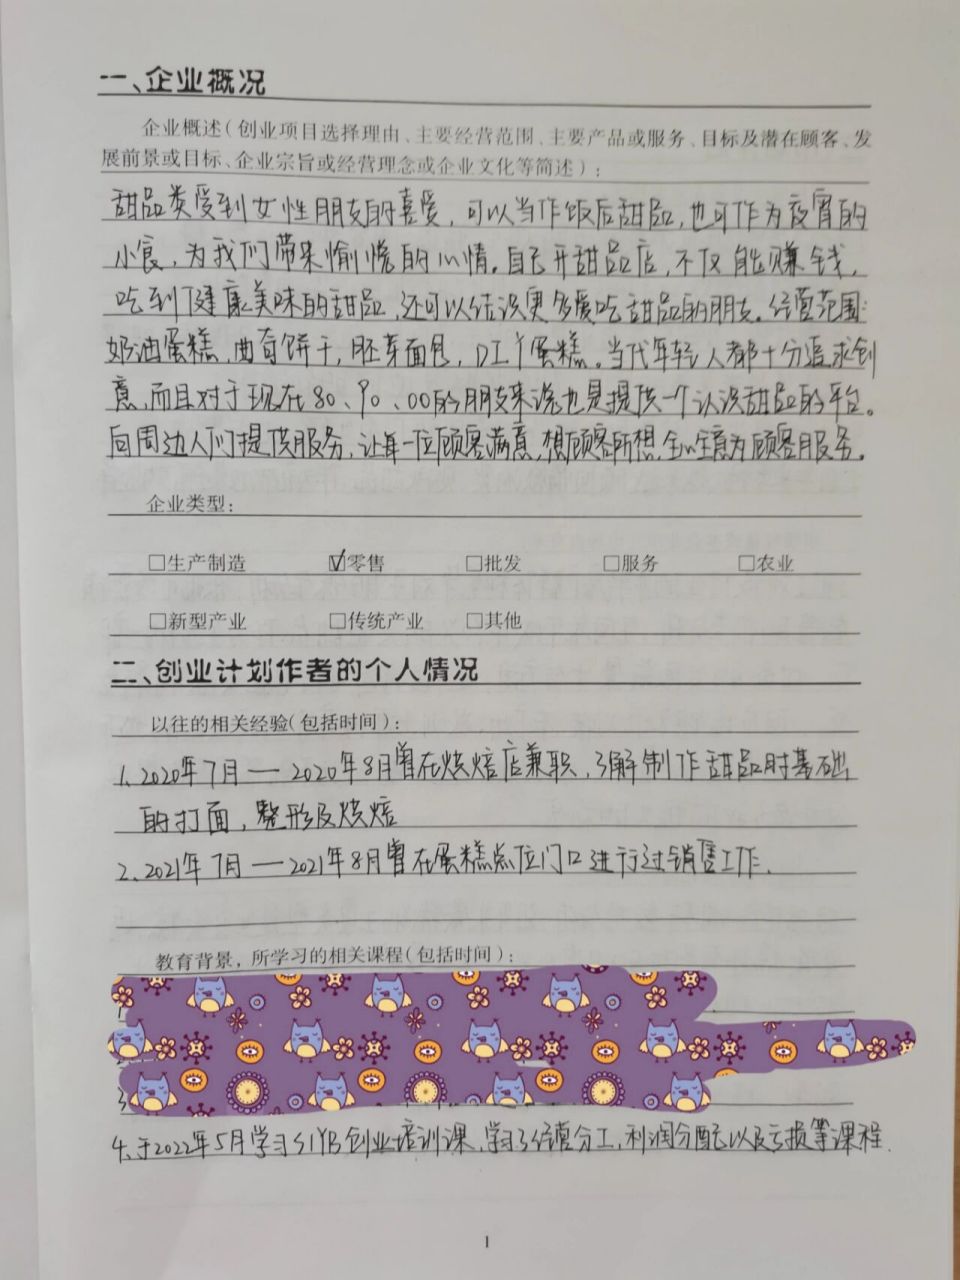 一、企业概况
企业概述(创业项目选择理由、主要经营范围、主要产品或服务、目标及潜在顾客、发
展前景或目标、企业宗旨或经营理念或企业文化等简述):
甜品类受到女性朋友的喜爱,可以当作饭后甜品,也可作为夜宵的
小食,为我们带来愉悦的心情。自己开甜品店,不仅能赚钱,
吃到健康美味的甜品,还可以结识更多爱吃甜品的朋友。经营范围:
奶油蛋糕,曲奇饼干,胚芽面包,DIY蛋糕。当代年轻人都十分追求创
意,而且对于现在80、90、00的朋友来说也是提供一个认识甜品的平台。
向周边人们提供服务,让每一位顾客满意,想顾客所想,全心全意为顾客服务。
企业类型:
□生产制造 ☑零售 □批发 □服务 □农业
□新型产业 □传统产业 □其他
二、创业计划作者的个人情况
以往的相关经验(包括时间):
1.2020年7月—2020年8月曾在烘焙店兼职,了解制作甜品时基础
的打面,整形及烘焙
2.2021年7月—2021年8月曾在蛋糕点位门口进行过销售工作.
教育背景,所学习的相关课程(包括时间):
3
4.于2022年5月学习SIYB创业培训课,学习了经营分工,利润分配以及亏损等课程.
1